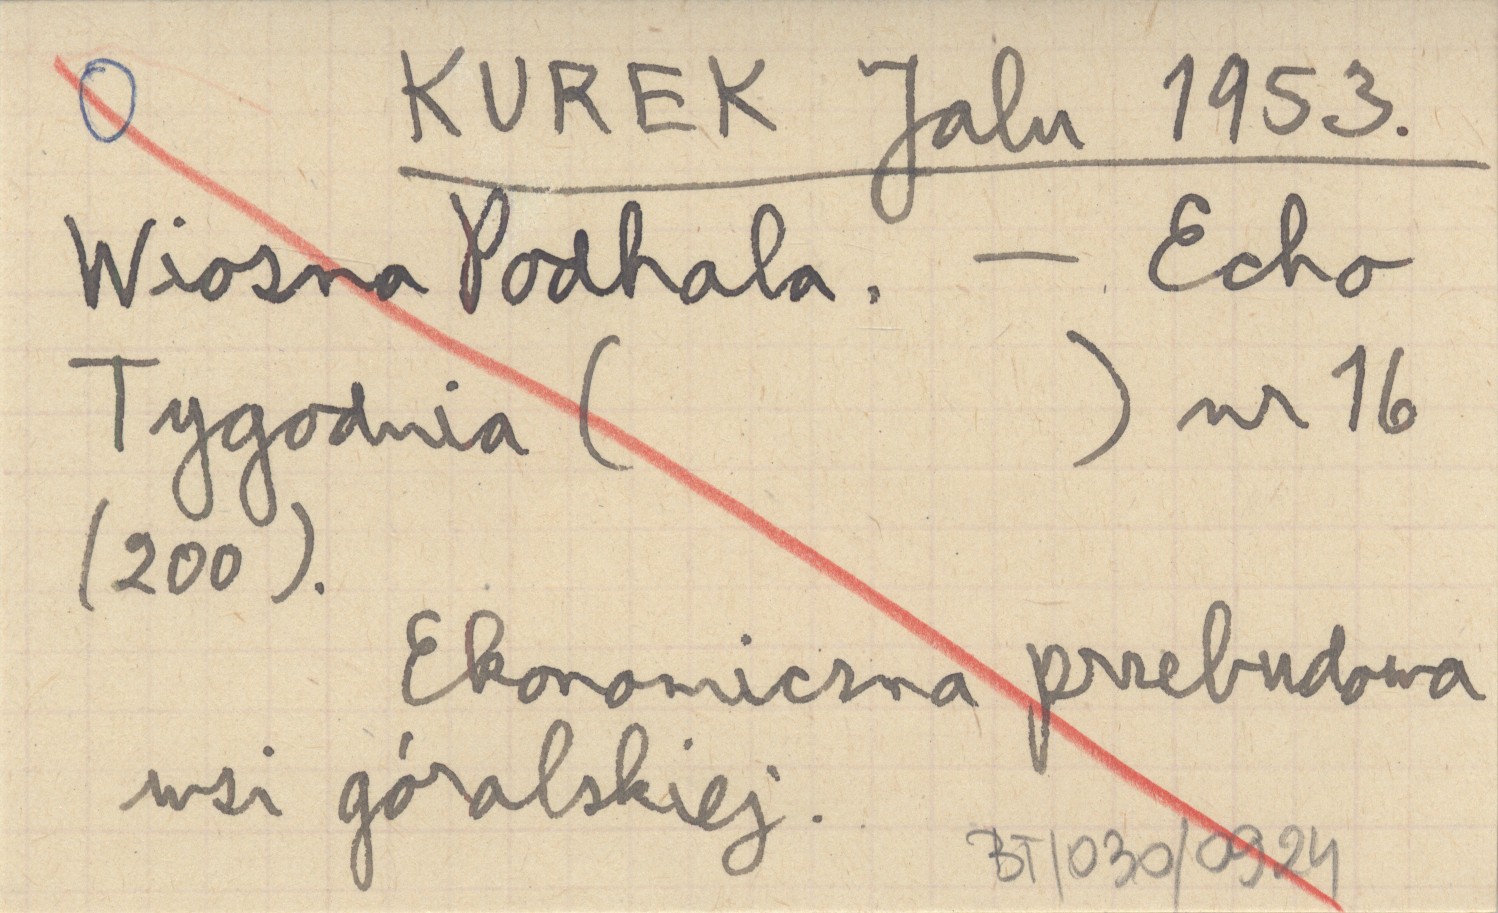 O KUREK Jalu 1953.
Wiosna Podhala. — Echo
Tygodnia ( ) nr 16
(200).
Ekonomiczna przebudowa
wsi góralskiej.
BT/030/0924